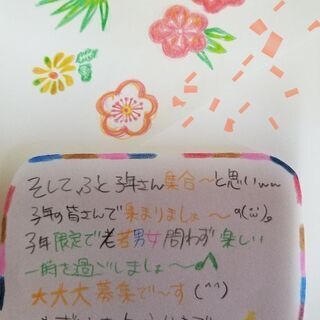 そして、ふと子年さん集合〜と思いww
子年の皆さんで集まりましょ〜٩(ˊᗜˋ)و
子年限定で老若男女問わず楽しい
一時を過ごしましょ〜♪
★大大募集で〜す(^^)